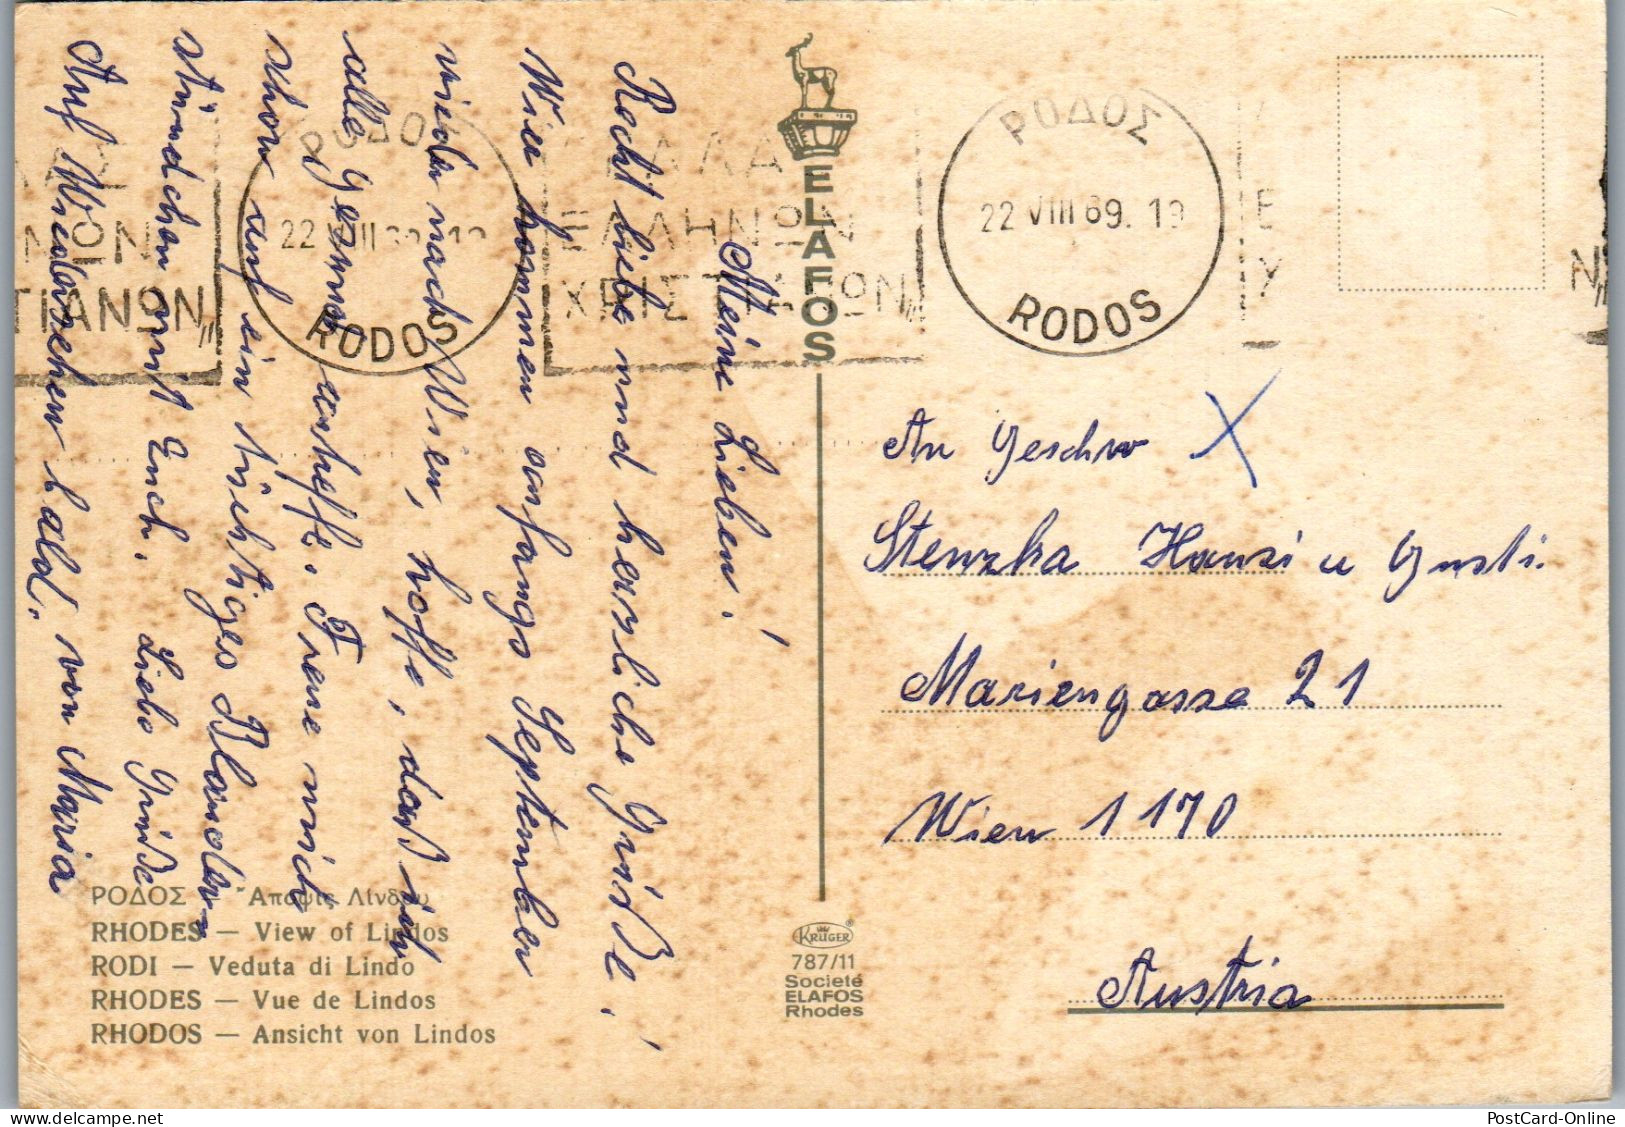 Meine Lieben!
Recht liebe und herzliche Grüße!
Wir kommen anfangs September
wieder nach Wien, hoffe, daß ich
alle gesund antreffe. Freue mich
schon auf ein tüchtiges Plauder
stündchen mit Euch. Liebe Grüße
Auf Wiedersehen bald. von Maria
ΡΟΔΟΣ — Ἄποψις Λίνδου
RHODES — View of Lindos
RODI — Veduta di Lindo
RHODES — Vue de Lindos
RHODOS — Ansicht von Lindos
ELAFOS
KRÜGER
787/11
Societé
ELAFOS
Rhodes
ΡΟΔΟΣ
22 VIII 69. 19
RODOS
ΡΟΔΟΣ
22 VIII
RODOS
ΕΛΛΗΝΩΝ
ΧΡΙΣΤΙΑΝΩΝ
ΤΙΑΝΩΝ
An Geschw
Stenzka Hansi u Gusti.
Mariengasse 21
Wien 1170
Austria
PostCard-Online